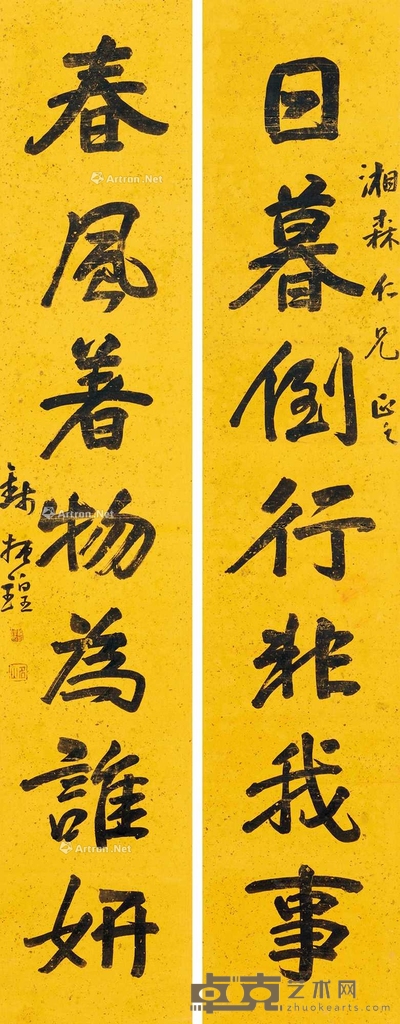 日暮倒行非我事
湘森仁兄正之
春風著物為誰妍
錢振鍠
Artron.Net
Artron.Net
Artron.Net
卓克艺术网
zhuokearts.com